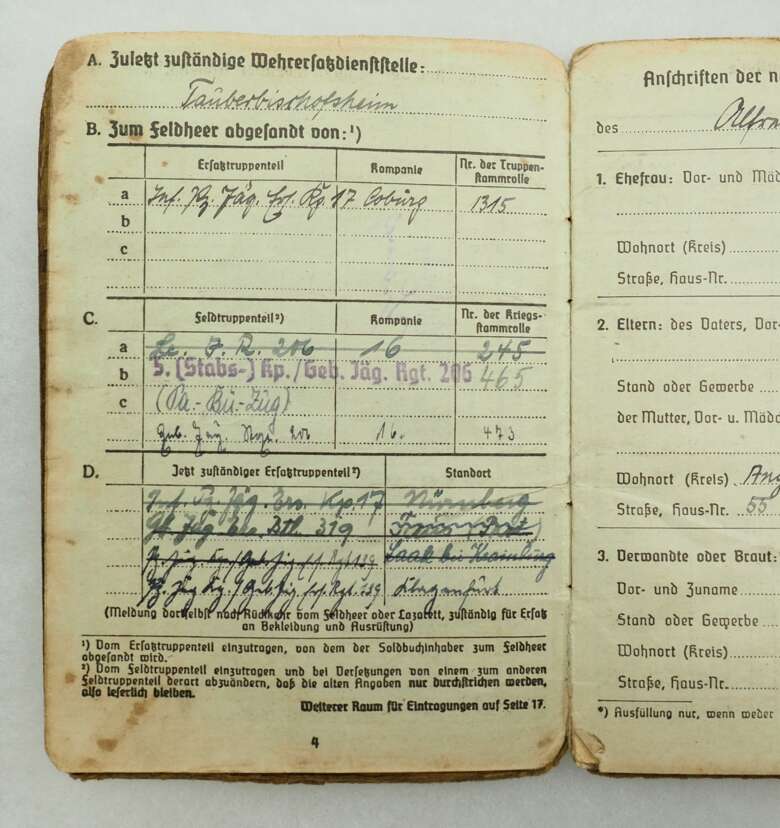 A. Zuletzt zuständige Wehrersatzdienststelle:
Tauberbischofsheim
B. Zum Feldheer abgesandt von:¹)
Ersatztruppenteil Kompanie Nr. der Truppen-
stammrolle
a Inf. Pz. Jäg. Ers. Kp. 17 Coburg 1315
b
c
C. Feldtruppenteil²) Kompanie Nr. der Kriegs-
stammrolle
a Le. J. R. 206 16 245
b 5. (Stabs-) Kp./Geb. Jäg. Rgt. 206 465
c (Pa.-Bü.-Zug)
Geb. Jäg. Rgt. 206 16. 473
D. Jetzt zuständiger Ersatztruppenteil²) Standort
Inf. Pz. Jäg. Ers. Kp. 17 Nürnberg
Jäg. Ers. Btl. 319
Pz. Jäg. Kp./Geb. Jäg. Rgt. 139
Pz. Jäg. Kp./Geb. Jäg. Rgt. 139 Klagenfurt
(Meldung dortselbst nach Rückkehr vom Feldheer oder Lazarett, zuständig für Ersatz
an Bekleidung und Ausrüstung)
¹) Vom Ersatztruppenteil einzutragen, von dem der Soldbuchinhaber zum Feldheer
abgesandt wird.
²) Vom Feldtruppenteil einzutragen und bei Versetzungen von einem zum anderen
Feldtruppenteil derart abzuändern, daß die alten Angaben nur durchstrichen werden,
also leserlich bleiben.
Weiterer Raum für Eintragungen auf Seite 17.
4
Anschriften der n
des Alfre
1. Ehefrau: Vor- und Mäd
Wohnort (Kreis)
Straße, Haus-Nr.
2. Eltern: des Vaters, Vor-
Stand oder Gewerbe
der Mutter, Vor- u. Mädc
Wohnort (Kreis) Ang
Straße, Haus-Nr. 55
3. Verwandte oder Braut:
Vor- und Zuname
Stand oder Gewerbe
Wohnort (Kreis)
Straße, Haus-Nr.
*) Ausfüllung nur, wenn weder